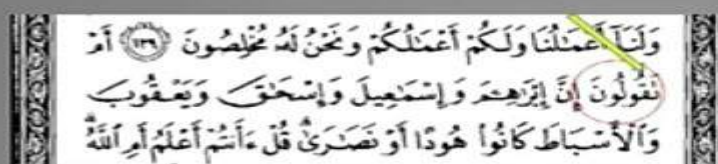 وَلَنَآ أَعْمَٰلُنَا وَلَكُمْ أَعْمَٰلُكُمْ وَنَحْنُ لَهُۥ مُخْلِصُونَ ١٣٩ أَمْ
تَقُولُونَ إِنَّ إِبْرَٰهِـۧمَ وَإِسْمَٰعِيلَ وَإِسْحَٰقَ وَيَعْقُوبَ
وَٱلْأَسْبَاطَ كَانُوا۟ هُودًا أَوْ نَصَٰرَىٰ ۗ قُلْ ءَأَنتُمْ أَعْلَمُ أَمِ ٱللَّهُ ۗ